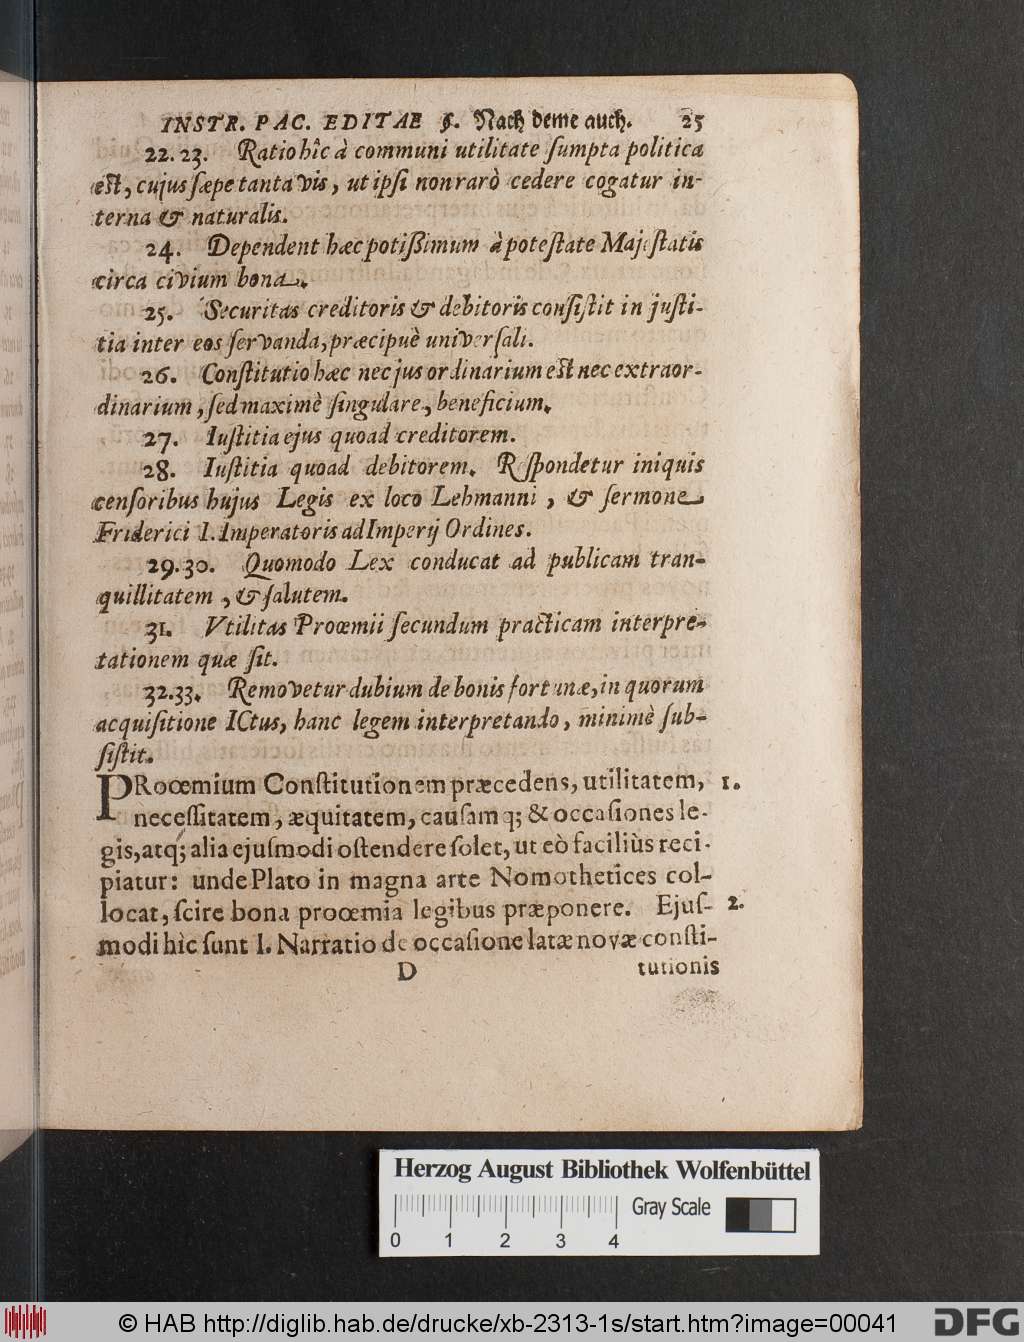 INSTR. PAC. EDITAE §. Nach deme auch. 25
22. 23. Ratio hîc à communi utilitate ſumpta politica
eſt, cujus ſæpe tanta vis, ut ipſi non rarò cedere cogatur in-
terna & naturalis.
24. Dependent hæc potiſſimum à poteſtate Majeſtatis
circa civium bona.
25. Securitas creditoris & debitoris conſiſtit in juſti-
tia inter eos ſervanda, præcipuè univerſali.
26. Conſtitutio hæc nec jus ordinarium eſt nec extraor-
dinarium, ſed maximè ſingulare, beneficium.
27. Iuſtitia ejus quoad creditorem.
28. Iuſtitia quoad debitorem. Reſpondetur iniquis
cenſoribus hujus Legis ex loco Lehmanni, & ſermone
Friderici I. Imperatoris ad Imperij Ordines.
29. 30. Quomodo Lex conducat ad publicam tran-
quillitatem, & ſalutem.
31. Vtilitas Proœmii ſecundum practicam interpre-
tationem quæ ſit.
32. 33. Removetur dubium de bonis fortunæ, in quorum
acquiſitione ICtus, hanc legem interpretando, minimè ſub-
ſiſtit.
PRoœmium Conſtitutionem præcedens, utilitatem, 1.
neceſſitatem, æquitatem, cauſamq; & occaſiones le-
gis, atq; alia ejuſmodi oſtendere ſolet, ut eò faciliùs reci-
piatur: unde Plato in magna arte Nomothetices col-
locat, ſcire bona proœmia legibus præponere. Ejuſ- 2.
modi hîc ſunt I. Narratio de occaſione latæ novæ conſti-
D tutionis
Herzog August Bibliothek Wolfenbüttel
Gray Scale
0 1 2 3 4
© HAB http://diglib.hab.de/drucke/xb-2313-1s/start.htm?image=00041
DFG